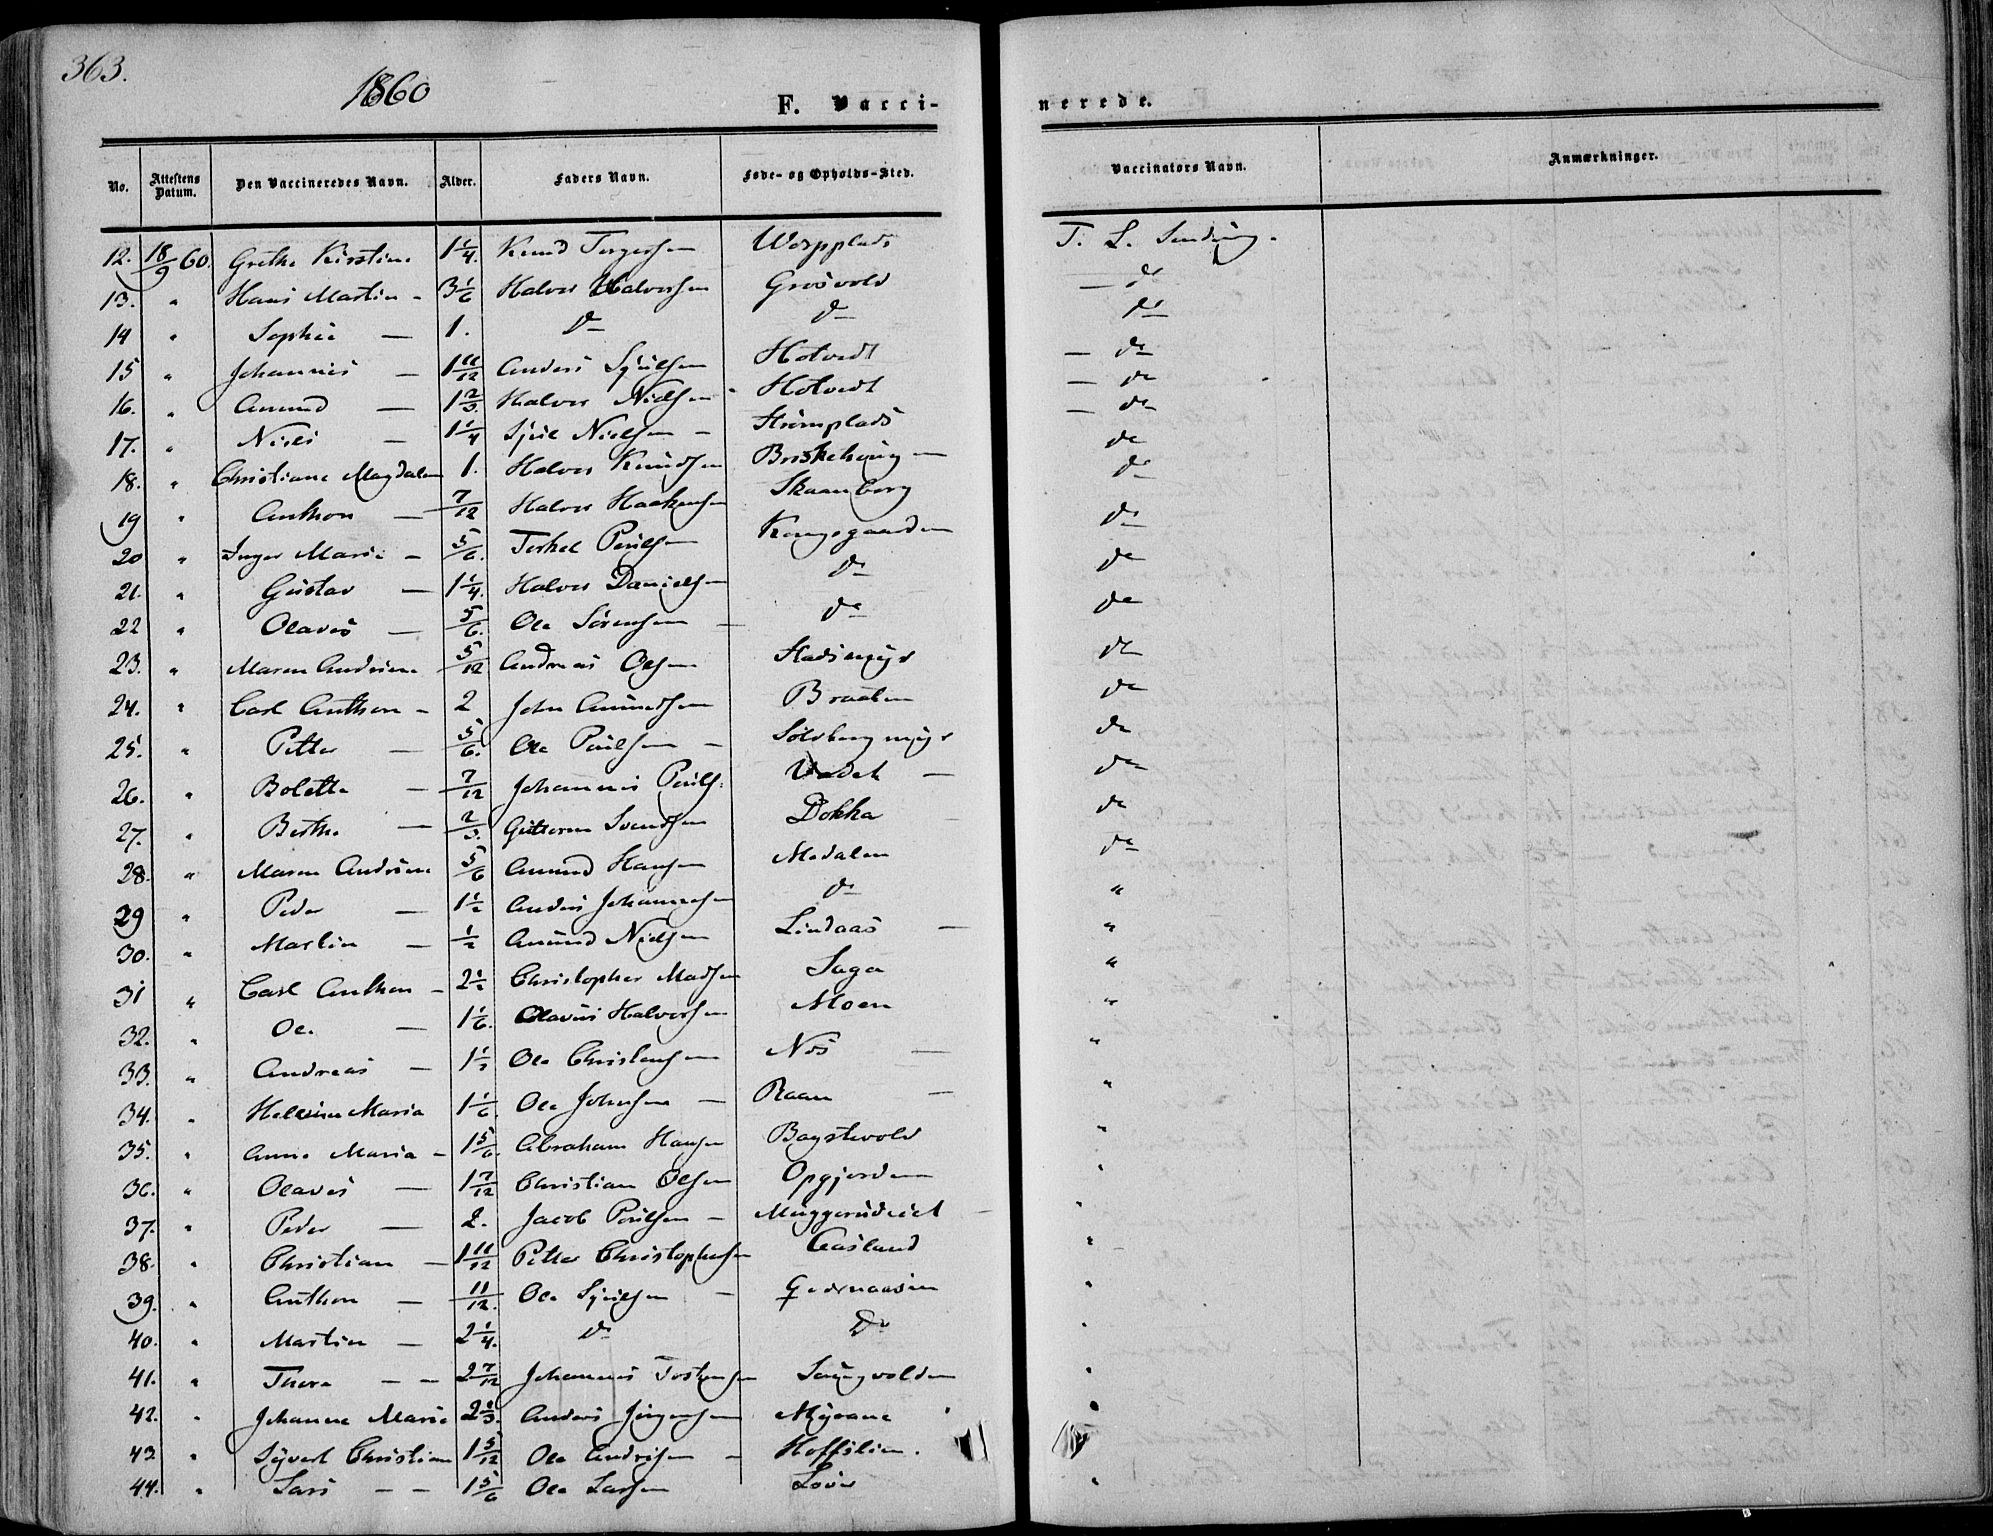 363.
1860
F. Vacci-
nerede.
No. Attestens Datum. Den Vaccineredes Navn. Alder. Faders Navn. Føde- og Opholds-Sted. Vaccinators Navn. Anmærkninger.
12. 18/9 60. Grethe Kirstine 1 1/4. Knud Torgersen T. L.
13. " Hans Martin - 3 1/6 Halvor Halvorsen Grosvold — do
14 " Sophie — 1. do do do
15 " Johannes — 1 11/12 Anders Sjulsen Hotvedt — do
16. " Amund — 1 2/3. Halvor Nielsen Hotvedt — do
17. " Niels — 1 1/4 Sjul Nielsen — — do
18. " Christiane Magdalen 1. Halvor Knudsen do
19 " Anthon — 7/12 Halvor Haakensen Skaanberg do
20 " Inger Marie - 5/6. Terkel Poulsen Kongsgaarden do
21. " Gustav — 1 1/4. Halvor Danielsen do do
22 " Olaves — 5/6. Ole Sørensen — do do
23. " Maren Andrine 5/12 Andreas Olsen do
24. " Carl Anthon - 2 John Amundsen Braaten do
25. " Petter — 5/6. Ole Poulsen — Solsbergmyr do
26. " Bolette — 7/12 Johannes Pouls: — do
27. " Berthe — 2/3. Guttorm Svendsen Dokka do
28. " Maren Andrine 5/6 Amund Hansen Medalen do
29 " Peder — 1 1/2 Anders Johannesen do "
30. " Martin — 1/2 Amund Nielsen Lindaas — "
31 " Carl Anthon - 2 1/2 Christopher Madsen Saga "
32. " Ole — 1 1/6. Olavus Halvorsen Moen "
33. " Andreas — 1 1/2 Ole Christensen — "
34. " Maria 1 1/6. Ole Johnsen — Raan — "
35. " Anne Maria - 1 5/6. Abraham Hansen "
36. " Olaves — 1 7/12 Christian Olsen Opgjorden "
37. " Peder — 2. Jacob Poulsen — Muggerudeiet "
38. " Christian — 1 11/12 Petter Christophersen Aasland "
39. " Anthon — 11/12. Ole Sjulsen — "
40. " Martin — 2 1/4. do do "
41. " Thora — — 2 7/12 Johannes "
42. " Johanne Marie 2 1/3. Anders Jørgensen Myrane "
43. " Syvert Christian 1 5/12 Ole Andersen —
44. " Lars — — 1 5/6 Ole Larsen "